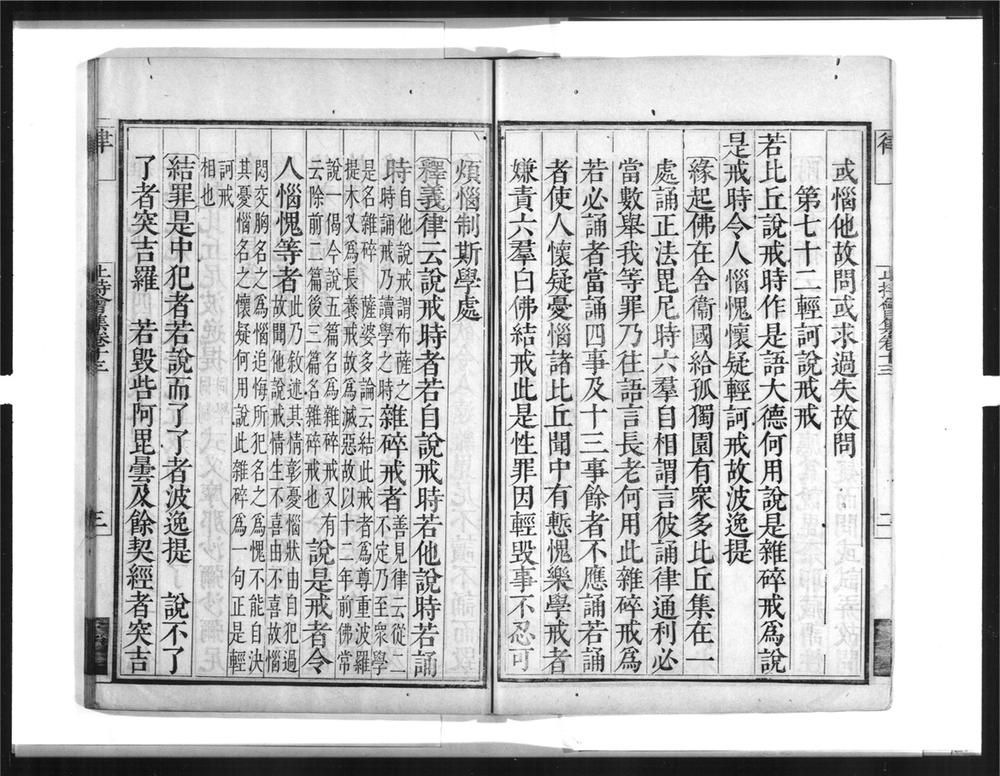 或惱他故問或求過失故問
第七十二輕訶說戒戒
若比丘說戒時作是語大德何用說是雜碎戒爲說
是戒時令人惱愧懷疑輕訶戒故波逸提
緣起佛在舍衞國給孤獨園有衆多比丘集在一
處誦正法毘尼時六羣自相謂言彼誦律通利必
當數舉我等罪乃往語言長老何用此雜碎戒爲
若必誦者當誦四事及十三事餘者不應誦若誦
者使人懷疑憂惱諸比丘聞中有慙愧樂學戒者
嫌責六羣白佛結戒此是性罪因輕毀事不忍可
止持會集卷十三
二
煩惱制斯學處
釋義律云說戒時者若自說戒時若他說時若誦
時自他說戒謂布薩之
時時誦戒乃讀學之時雜碎戒者善見律云從二
不定乃至衆學
是名雜碎 薩婆多論云結此戒者爲尊重波羅
提木叉爲長養戒故爲滅惡故以十二年前佛常
說一偈今說五篇名爲雜碎戒又有
云除前二篇後三篇名雜碎戒也說是戒者令
人惱愧等者此乃敘述其情彰憂惱狀由自犯過
故聞他說戒情生不喜由不喜故惱
悶交胸名之爲惱追悔所犯名之爲愧不能自決
其憂惱名之懷疑何用說此雜碎爲一句正是輕
訶戒
相也
結罪是中犯者若說而了了者波逸提 說不了
了者突吉羅 若毀呰阿毘曇及餘契經者突吉
律
止持會集卷十三
三